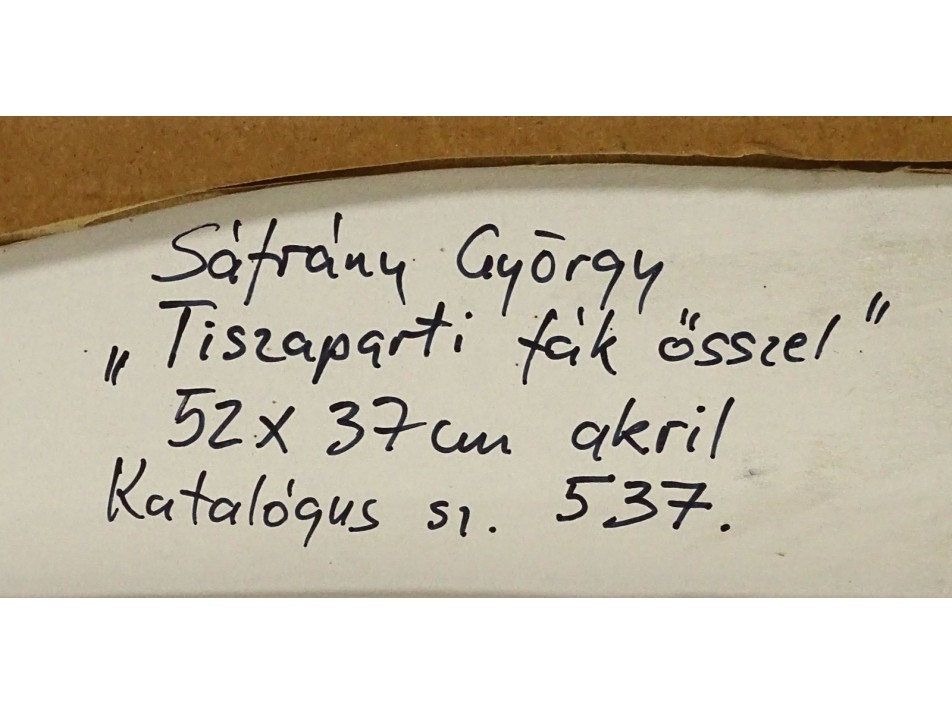 Sáfrány György
„Tiszaparti fák ősszel"
52x37cm akril
Katalógus sz. 537.